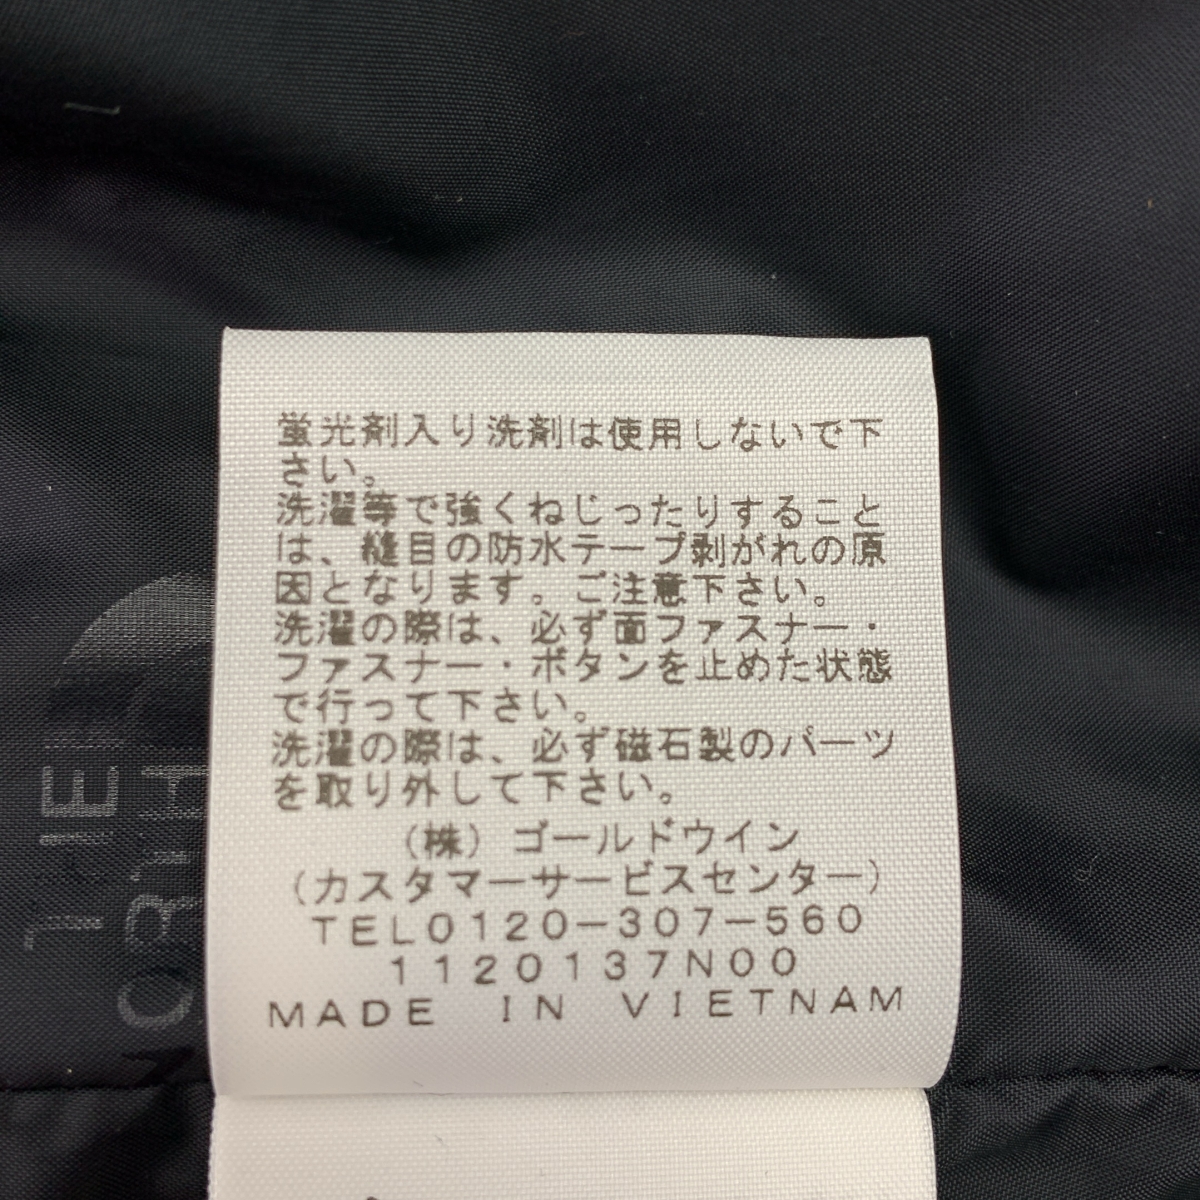 蛍光剤入り洗剤は使用しないで下
さい。
洗濯等で強くねじったりすること
は、縫目の防水テープ剥がれの原
因となります。ご注意下さい。
洗濯の際は、必ず面ファスナー・
ファスナー・ボタンを止めた状態
で行って下さい。
洗濯の際は、必ず磁石製のパーツ
を取り外して下さい。
(株)ゴールドウイン
(カスタマーサービスセンター)
TEL0120-307-560
1120137N00
MADE IN VIETNAM